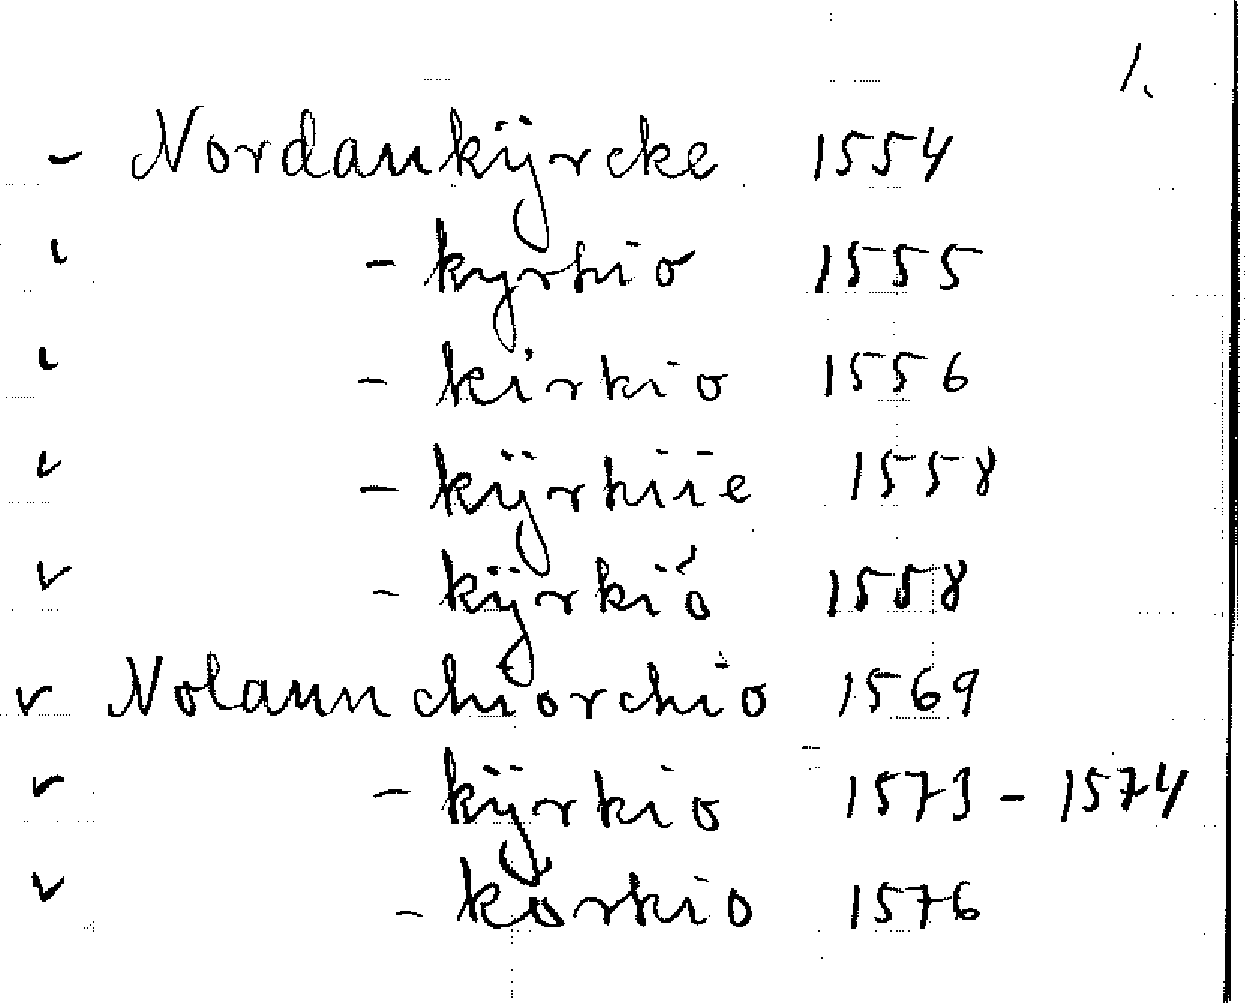 1.
- Nordankÿrcke 1554
- kyrkio 1555
- kirkio 1556
- kÿrkiie 1558
- kÿrkió 1558
Nolaunchiorchio 1569
- kÿrkio 1573 - 1574
- korkio 1576